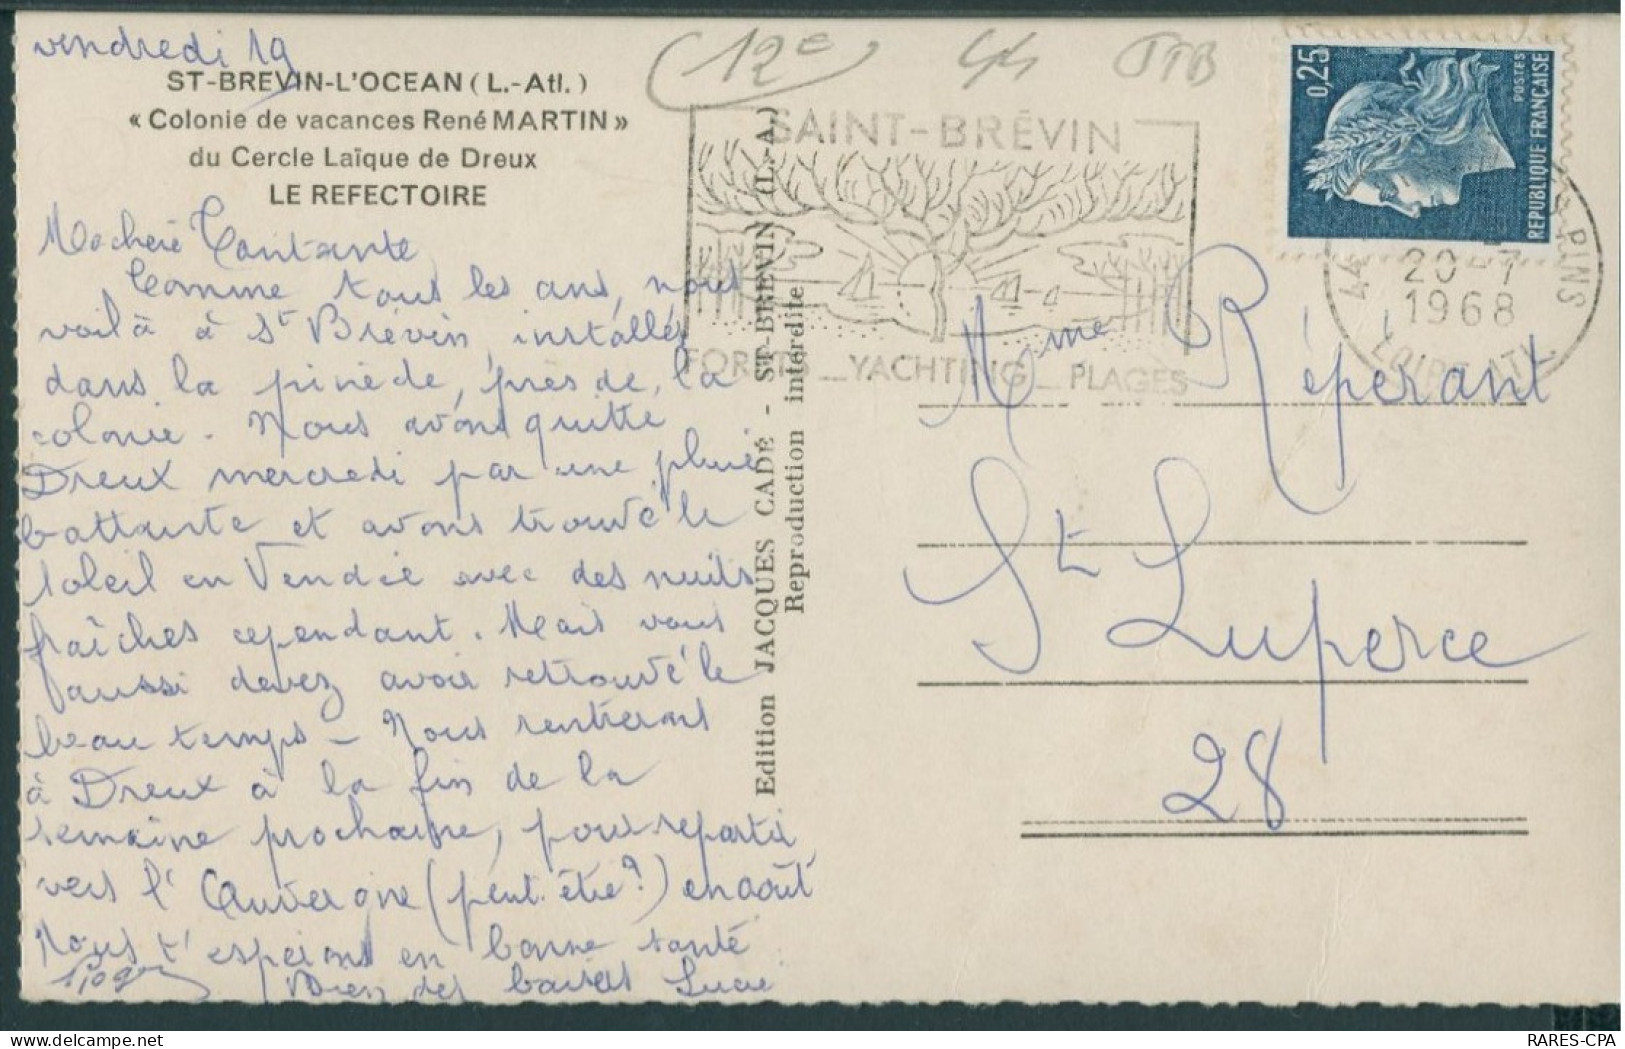 vendredi 19
ST-BREVIN-L'OCEAN (L.-Atl.)
« Colonie de vacances René MARTIN »
du Cercle Laïque de Dreux
LE REFECTOIRE
Ma chère Tantante
Comme tous les ans, nous
voilà à St Brévin, installés
dans la pinède, près de la
colonie. Nous avons quitté
Dreux mercredi par une pluie
battante et avons trouvé le
soleil en Vendée avec des nuits
fraîches cependant. Mais vous
aussi devez avoir retrouvé le
beau temps - Nous rentrerons
à Dreux à la fin de la
semaine prochaine, pour repartir
vers l'Auvergne (peut-être ?) en août
Nous t'espérons en bonne santé
Bien des baisers Lucie
Roger
Edition JACQUES CADÉ - ST-BREVIN (L.-A.)
Reproduction interdite
12e 44 TTB
SAINT-BRÉVIN
FORÊTS _ YACHTING _ PLAGES
0,25
POSTES
REPUBLIQUE FRANÇAISE
44
PINS
20-7
1968
LOIRE-ATL
Mme Réperant
St Luperce
28
RARES-CPA